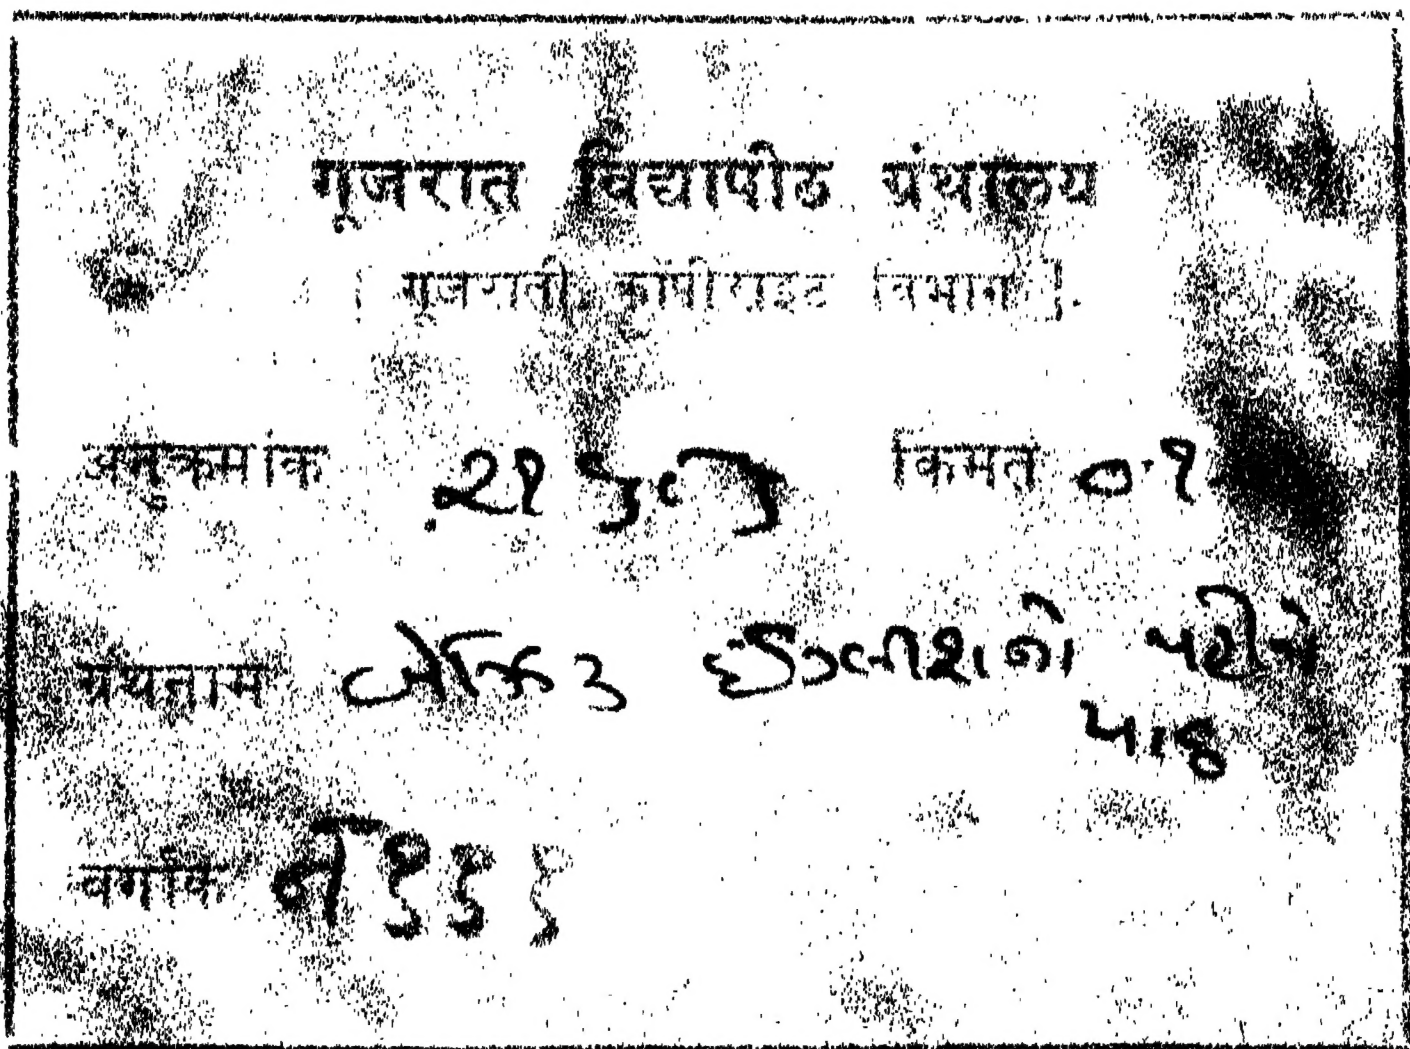 गूजरात विद्यापीठ ग्रंथालय
[ गूजराती कॉपीराइट विभाग ]
अनुक्रमांक किंमत ०-१
ग्रंथनाम બેઝિક ઈંગ્લીશનો પહેલો
પાઠ
वर्गांक